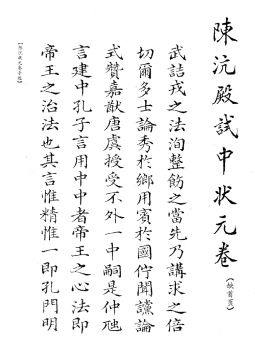 陳沆殿試中狀元卷
（缺首頁）
武詰戎之法洵整飭之當先乃講求之倍
切爾多士論秀於鄉用賓於國佇聞讜論
式贊嘉猷唐虞授受不外一中嗣是仲虺
言建中孔子言用中中者帝王之心法即
帝王之治法也其言惟精惟一即孔門明